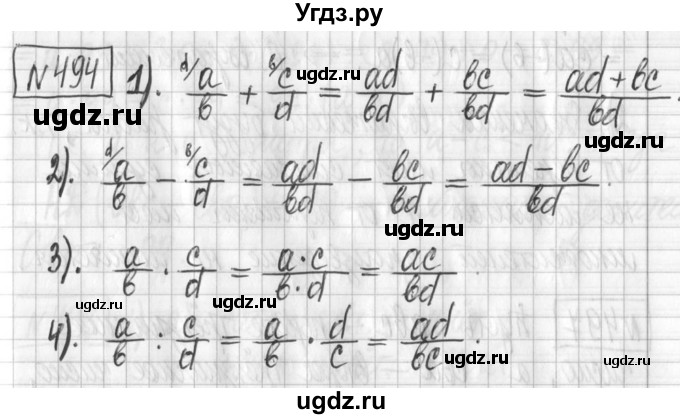 Угдз.ру
№494 1). d/ a/b + b/ c/d = ad/bd + bc/bd = (ad + bc)/bd.
ugdz.ru
ugdz.ru
ugdz.ru
2). d/ a/b − b/ c/d = ad/bd − bc/bd = (ad − bc)/bd.
ugdz.ru
ugdz.ru
3). a/b · c/d = (a · c)/(b · d) = ac/bd.
ugdz.ru
ugdz.ru
4). a/b : c/d = a/b · d/c = ad/bc.
ugdz.ru
ugdz.ru
ugdz.ru